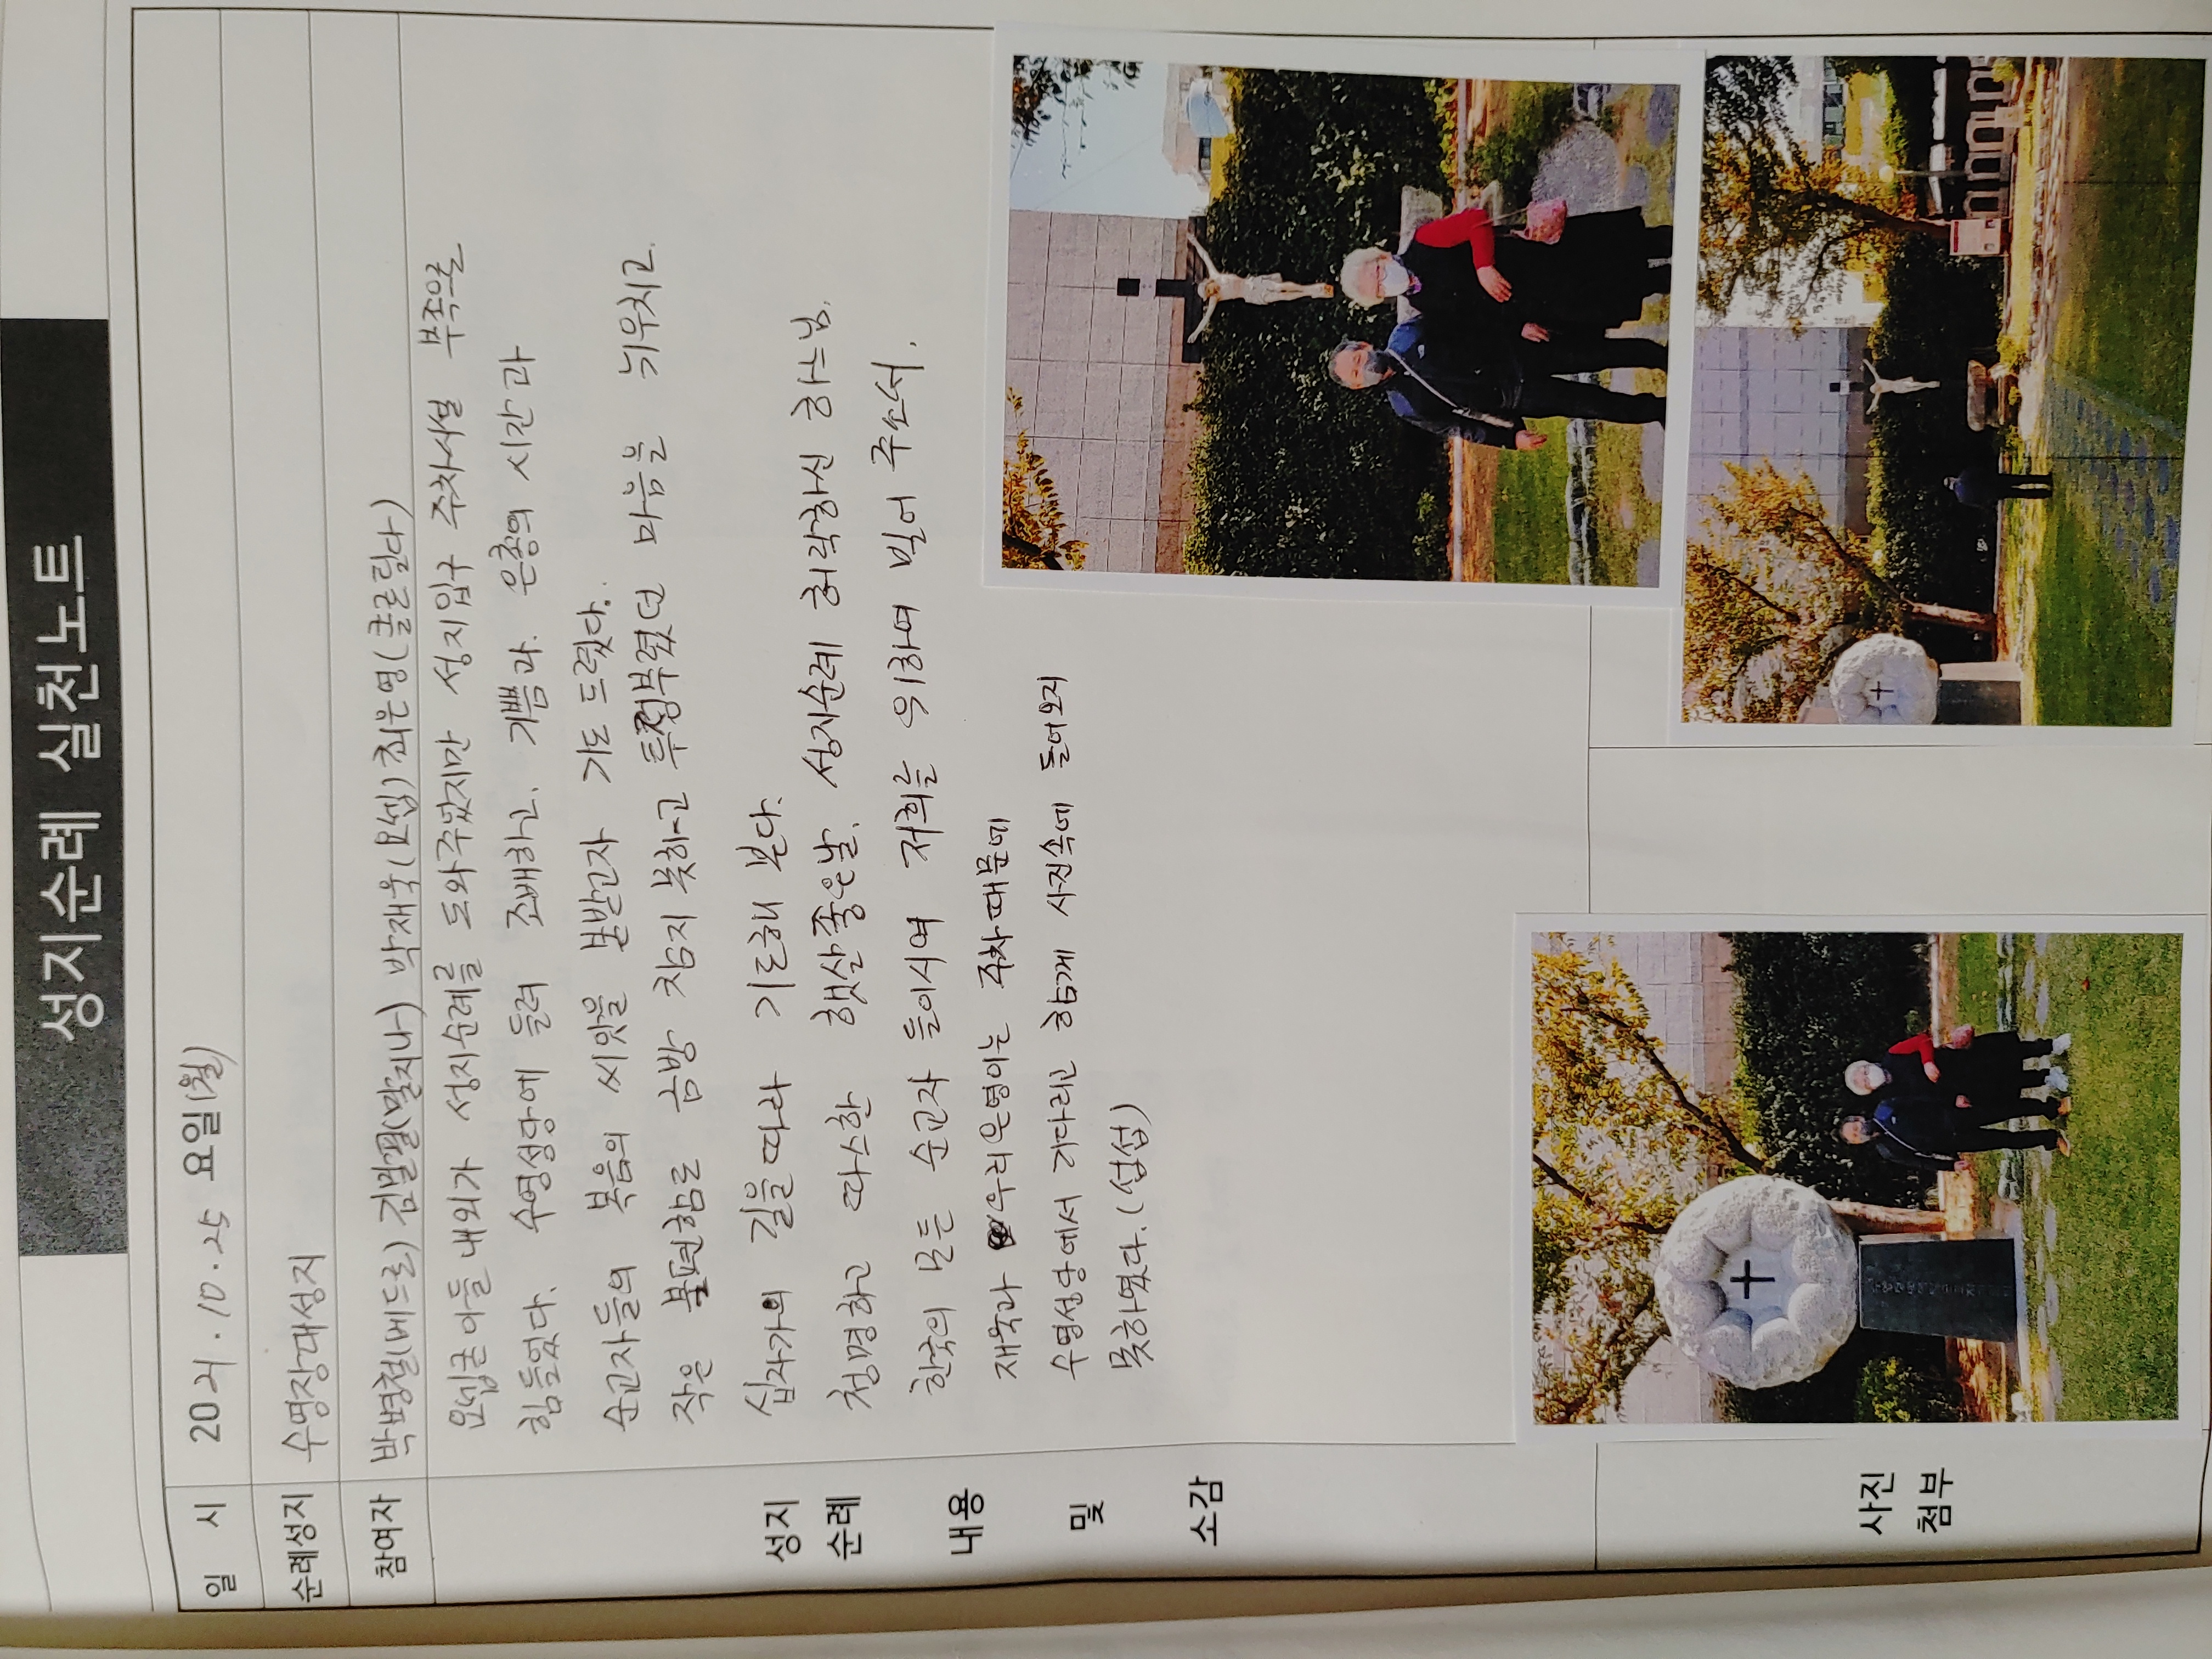 성지순례 실천노트
일 시 2021.10.25 요일(월)
순례성지 수영장대성지
참여자 박병철(베드로) 김말필(말지나) 박재욱(요셉) 최은영(클로틸다)
성지
순례
내용
및
소감
요셉군 아들 내외가 성지순례를 도와주었지만 성지입구 주차시설 부족으로
힘들었다. 수영성당에 들려 조배하고. 기쁨과. 은총의 시간과
순교자들의 복음의 씨앗을 본받고자 기도 드렸다.
작은 불편함로 금방 참지 못하고 투정부렸던 마음을 뉘우치고.
십자가의 길을 따라 기도해 본다.
청명하고 따스한 햇살 좋은날. 성지순례 허락하신 하느님.
한국의 모든 순교자 들이시여 저희를 위하여 빌어 주소서.
재욱과 우리 은영이는 주차때문에
수영성당에서 기다리고 함게 사진속에 들어오지
못하였다. (섭섭)
사진
첨부